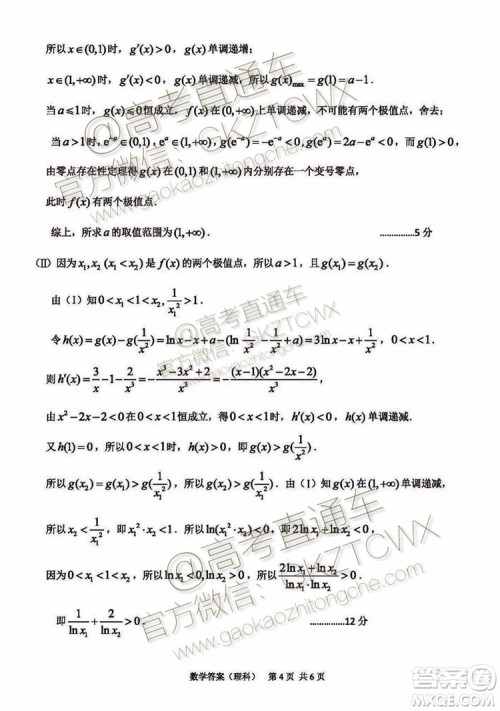 所以 x∈(0,1)时，g′(x)>0，g(x)单调递增；
x∈(1,+∞)时，g′(x)<0，g(x)单调递减，所以 g(x)max=g(1)=a−1．
当 a⩽1时，g(x)⩽0恒成立，f(x)在(0,+∞)上单调递减，不可能有两个极值点，舍去；
当 a>1时，e⁻ᵃ∈(0,1)，eᵃ∈(1,+∞)，g(e⁻ᵃ)=−e⁻ᵃ<0，g(eᵃ)=2a−eᵃ<0，而 g(1)>0，
由零点存在性定理得 g(x)在(0,1)和(1,+∞)内分别存在一个变号零点，
此时 f(x)有两个极值点．
综上，所求 a 的取值范围为(1,+∞)． ……………5 分
（II）因为 x₁, x₂ (x₁<x₂)是 f(x)的两个极值点，所以 a>1，且 g(x₁)=g(x₂)．
由（I）知 0<x₁<1<x₂, 1/x₁²>1．
令 h(x)=g(x)−g(1/x²)=ln x−x+a−(ln 1/x²−1/x²+a)=3ln x−x+1/x²，0<x<1．
则 h′(x)=3/x−1−2/x³=−(x³−3x²+2)/x³=−(x−1)(x²−2x−2)/x³，
由 x²−2x−2<0在 0<x<1恒成立，所以 h′(x)<0在 0<x<1时，h(x)单调递减．
又 h(1)=0，所以 h(x)>0，故 0<x<1时，g(x)>g(1/x²)．
所以 g(x₂)=g(x₁)>g(1/x₁²)，所以 g(x₂)>g(1/x₁²)．由（I）知 g(x)在(1,+∞)单调递减，
所以 x₂<1/x₁²，即 x₁²·x₂<1．所以 ln(x₁²·x₂)<0，即 2ln x₁+ln x₂<0，
因为 0<x₁<1<x₂，所以 ln x₁<0, ln x₂>0，所以 (2ln x₁+ln x₂)/(ln x₁ ln x₂)>0．
即 1/ln x₁+2/ln x₂>0． ……………12 分
数学答案（理科） 第 4 页 共 6 页
@高考直通车
官方微信：GKZTCWX
www.gaokaozhitongche.com
@高考直通车
官方微信：GKZTCWX
www.gaokaozhitongche.com
@高考直通车
官方微信：GKZTCWX
www.gaokaozhitongche.com